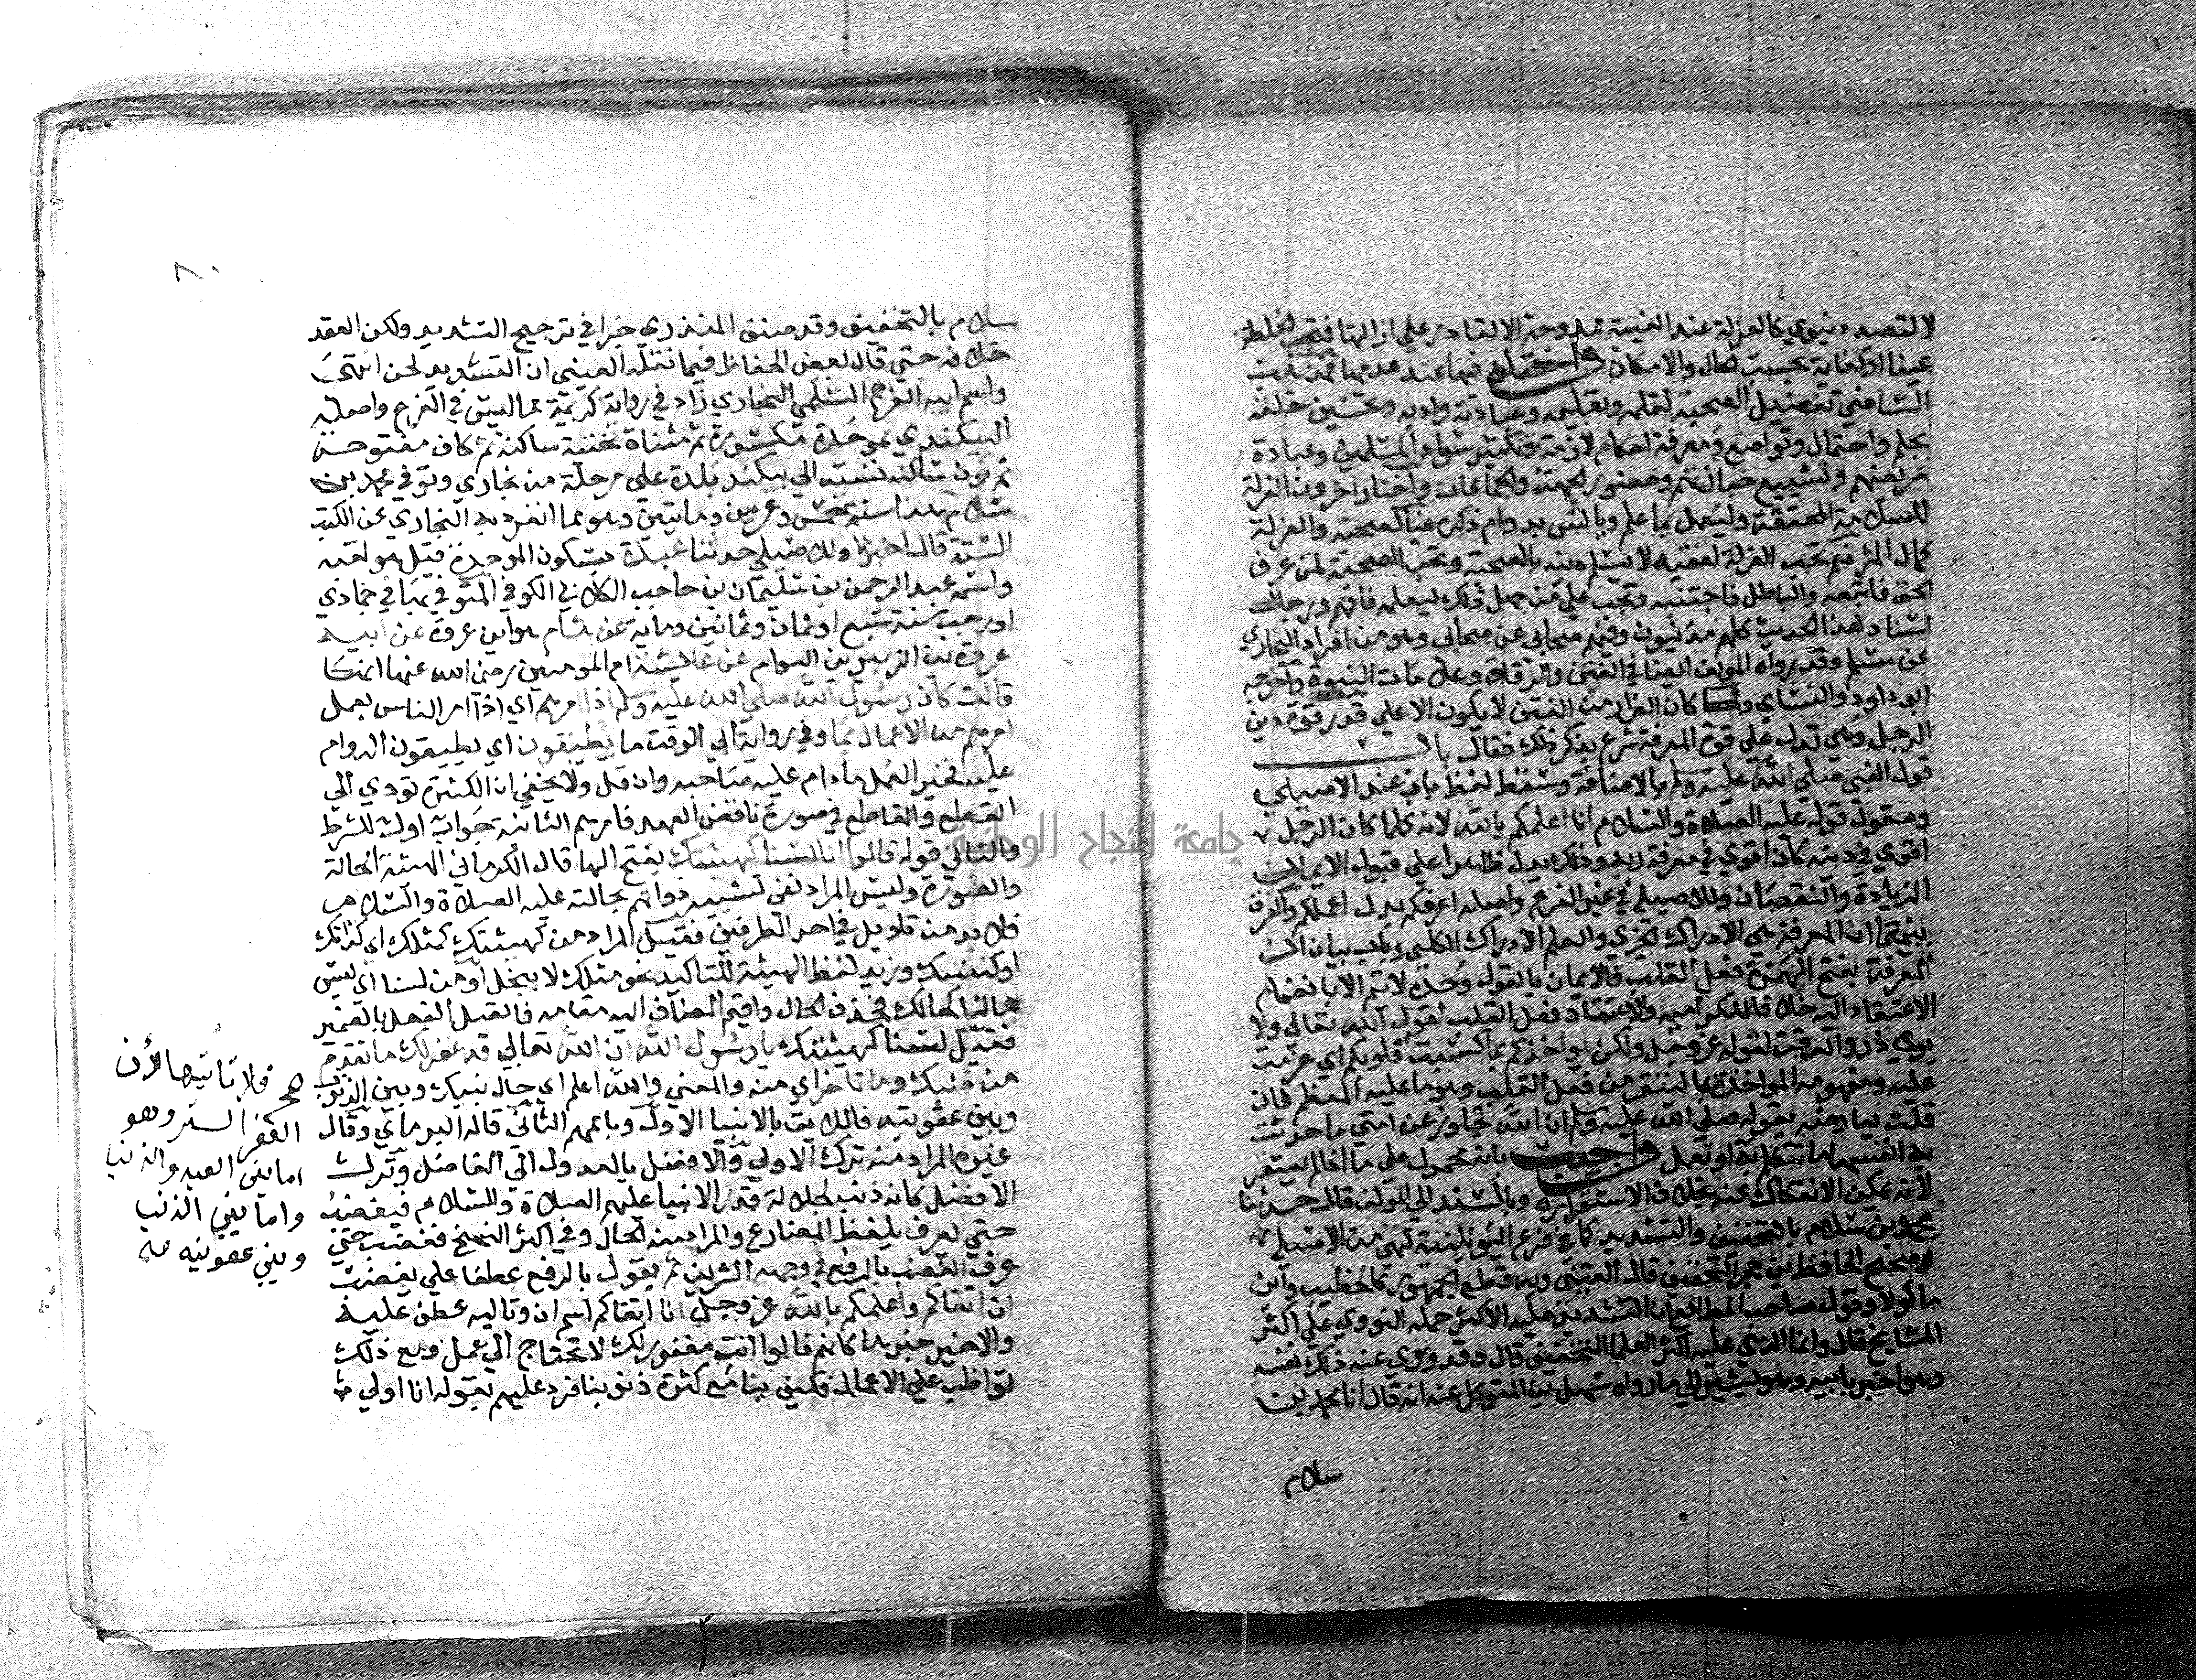 لا لقصد دنيوي كالعزلة عند الفتنة ممدوحة الا لقادر على ازالتها فتجب الخلطة
عينا او كفاية بحسب الحال والامكان واختلف فيها عند عدمها فمذهب
الشافعي تفضيل الصحبة لتعلمه وتعليمه وعبادته وادبه وتحسين خلقه
بحلم واحتمال وتواضع ومعرفة احكام لازمة وتكثير سواد المسلمين وعيادة
مريضهم وتشييع جنائزهم وحضور الجمعة والجماعات واختار اخرون العزلة
للسلامة المحققة وليعمل بما علم ويانس بدوام ذكره فبالصحبة والعزلة
كمال المرء نعم تجب العزلة لفقيه لا يسلم دينه بالصحبة وتجب الصحبة لمن عرف
الحق فاتبعه والباطل فاجتنبه وتجب على من جهل ذلك ليعلمه فافهم ورجال
اسناد هذا الحديث كلهم مدنيون وفيهم صحابي عن صحابي وهو من افراد البخاري
عن مسلم وقد رواه المؤلف ايضا في الفتن والرقاق وعلامات النبوة واخرجه
ابو داود والنسائي ولما كان الفرار من الفتن لا يكون الا على قدر قوة دين
الرجل وهي تدل على قوة المعرفة شرع يذكر ذلك فقال باب
قول النبي صلى الله عليه وسلم بالاضافة وسقط لفظ باب عند الاصيلي
ومقول قوله عليه الصلاة والسلام انا اعلمكم بالله لانه كلما كان الرجل
اقوي في دينه كان اقوي في معرفة ربه وذلك يدل ظاهرا على قبول الايمان
الزيادة والنقصان وللاصيلي في غير الفرع واصله اعرفكم بدل اعلمكم والفرق
بينهما ان المعرفة هي الادراك الجزي والعلم الادراك الكلي وباب بيان ان
المعرفة بفتح الهمزة فعل القلب فالايمان بالقول وحده لا يتم الا بانضمام
الاعتقاد اليه خلافا للكرامية والاعتقاد فعل القلب لقول الله تعالى ولا
بوي ذر والوقت لقوله عز وجل ولكن يواخذكم بما كسبت قلوبكم اي عزمت
عليه ومفهومه المواخذة بما يستقر من فعل القلب وهو ما عليه المعظم فان
قلت يعارضه بقوله صلى الله عليه وسلم ان الله تجاوز عن امتي ما حدثت
به انفسها ما لم تتكلم به او تعمل واجيب بانه محمول على ما اذا لم يستقر
لانه يمكن الانفكاك عنه بخلاف الاستقرار وبالسند الى المولف قال حدثنا
محمد بن سلام بالتخفيف والتشديد كما في فرع اليونينية كهي عن الاصيلي
وصحح الحافظ بن حجر التخفيف قال العيني وبه قطع الجمهور كالخطيب وابن
ماكولا وقول صاحب المطالع ان التشديد عليه الاكثر حمله النووي على اكثر
المشايخ قال وانما الذي عليه اكثر العلما التخفيف قال وقد روي عنه ذلك نفسه
وهو اخبر بابيه وهو يشير الى ما رواه سهل بن المتوكل عنه انه قال انا محمد بن
سلام
٨٠
سلام بالتخفيف وقد صنف المنذري جزا في ترجيح التشديد ولكن العقد
خلافه حتى قال بعض الحفاظ فيما نقله العيني ان التشديد لحن انتهى
واسم ابيه الفرج السلمي البخاري زاد في رواية كريمة مما ليس في الفرع واصله
البيكندي بموحدة مكسورة ثم مثناة تحتية ساكنة ثم كاف مفتوحة
ثم نون ساكنة نسبة الى بيكند بلدة على مرحلة من بخاري وتوفي محمد بن
سلام هذا سنة خمس وعشرين ومايتين وهو مما انفرد به البخاري عن الكتب
الستة قال اخبرنا ولاصيلي حدثنا عبدة بسكون الموحدة قيل هو لقبه
واسمه عبد الرحمن بن سليمان بن حاجب الكلابي الكوفي المتوفي بها في جمادي
او رجب سنة سبع او ثمان وثمانين وماية عن هشام هو ابن عروة عن ابيه
عروة بن الزبير بن العوام عن عايشة ام المومنين رضي الله عنها انها
قالت كان رسول الله صلى الله عليه وسلم اذا امرهم اي اذا امر الناس بعمل
امرهم من الاعمال بما وفي رواية ابي الوقت ما يطيقون اي يطيقون الدوام
عليه فخير العمل ما دام عليه صاحبه وان قل ولا يخفي ان الكثرة تودي الى
القطع والقاطع في صورة ناقض العهد فامرهم الثانية جواب اول للشرط
والثاني قوله قالوا انا لسنا كهيئتك بفتح الها قال الكرماني الهيئة الحالة
والصورة وليس المراد نفي تشبيه ذواتهم بحالته عليه الصلاة والسلام
فلا بد من تاويل في احد الطرفين فقيل المراد من كهيئتك كمثلك اي كذاتك
او كنفسك وزيد لفظ الهيئة للتاكيد نحو مثلك لا يبخل او من لسنا اي ليس
حالنا كحالك فحذف الحال واقيم المضاف اليه مقامه فاتصل الفعل بالضمير
فقيل لسنا كهيئتك يا رسول الله ان الله تعالى قد غفر لك ما تقدم
من ذنبك وما تاخر اي منه والمعني والله اعلم اي حال بينك وبين الذنوب
وبين عقوبته فاللايق بالانبيا الاول وباممهم الثاني قاله البرماوي وقال
غيره المراد منه ترك الاولي والافضل بالعدول الى الفاضل وترك
الافضل كانه ذنب لجلالة قدر الانبيا عليهم الصلاة والسلام فيغضب
حتى يعرف بلفظ المضارع والمراد منه الحال وفي اكثر النسخ فغضب حتى
عرف الغضب بالرفع في وجهه الشريف ثم يقول بالرفع عطفا على يغضب
ان اتقاكم واعلمكم بالله عز وجل انا اتقاكم اسم ان وتاليه عطف عليه
والاخير خبرها كانهم قالوا انت مغفور لك لا تحتاج الى عمل ومع ذلك
تواظب على الاعمال فكيف بنا مع كثرة ذنوبنا فرد عليهم بقوله انا اولي
فلا تاتيها لأن
الغفر الستر وهو
اما بين العبد والذنب
واما بين الذنب
وبين عقوبته صح
جامعة النجاح الوطنية